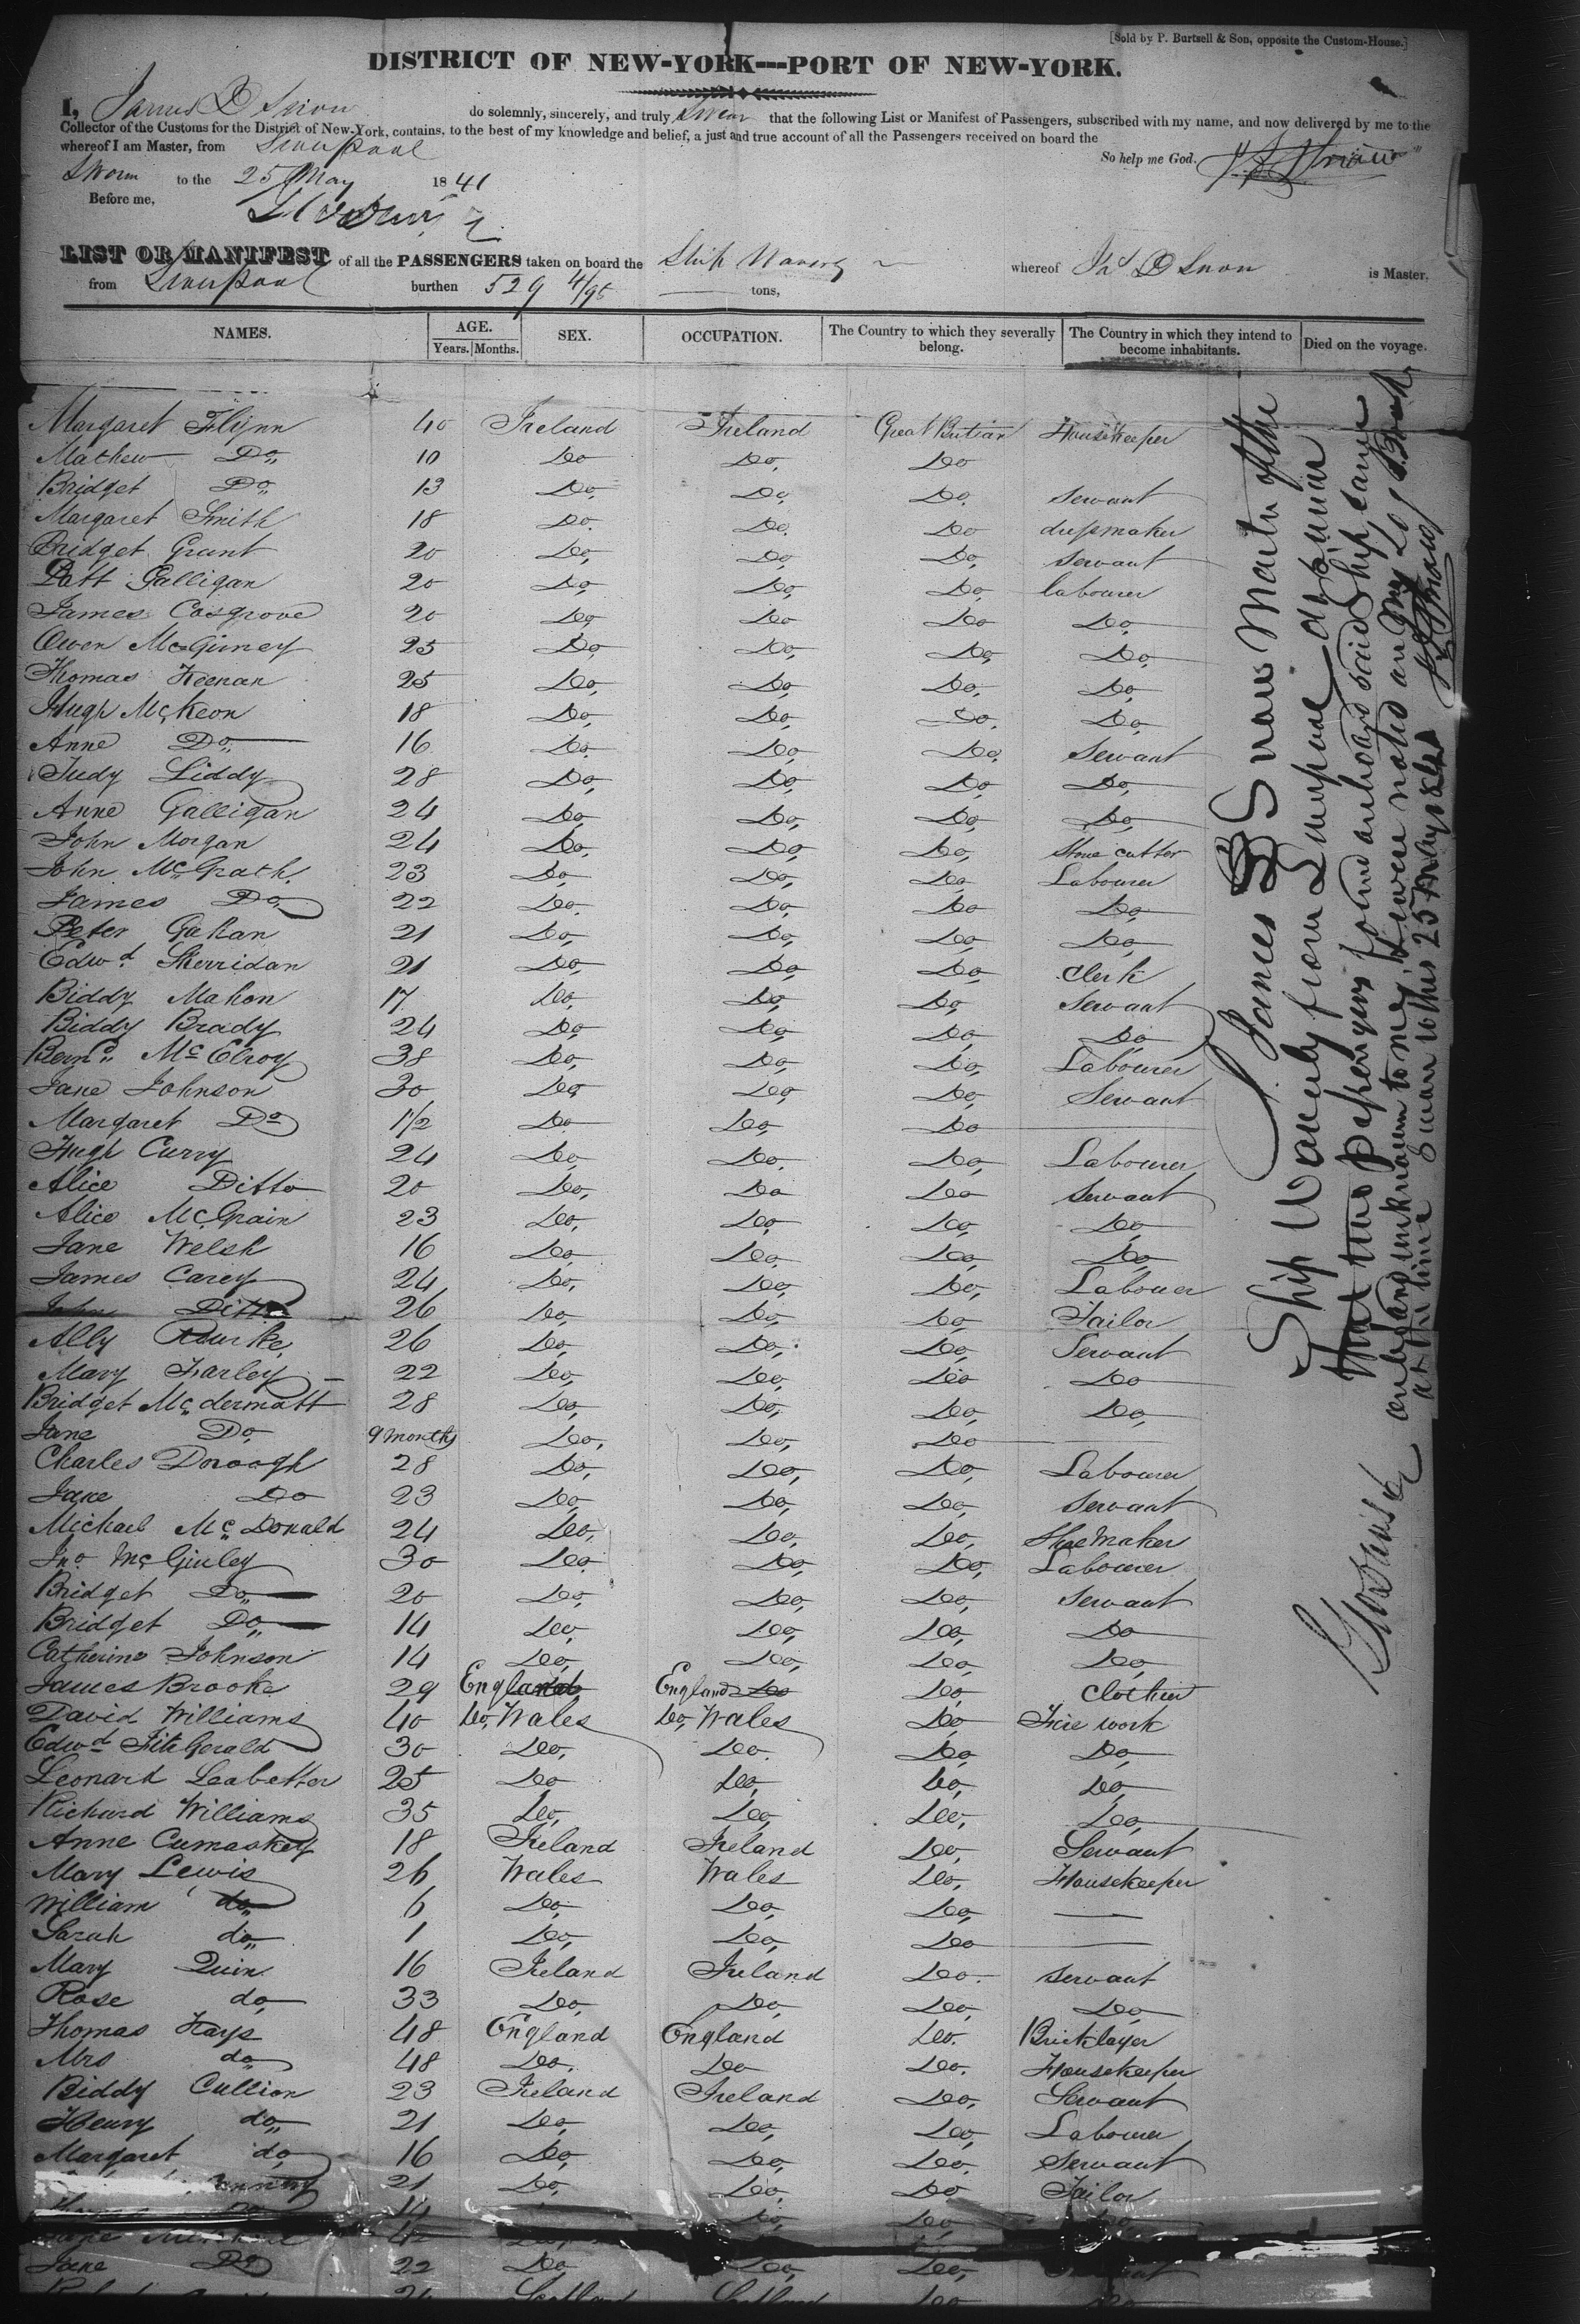 [Sold by P. Burtsell & Son, opposite the Custom-House.]
DISTRICT OF NEW-YORK---PORT OF NEW-YORK.
I, James D Snow do solemnly, sincerely, and truly Swear that the following List or Manifest of Passengers, subscribed with my name, and now delivered by me to the
Collector of the Customs for the District of New-York, contains, to the best of my knowledge and belief, a just and true account of all the Passengers received on board the
whereof I am Master, from Liverpool
So help me God.
Sworn to the 25 May 1841
Before me,
LIST OR MANIFEST of all the PASSENGERS taken on board the Ship Waverly whereof Jas D Snow is Master,
from Liverpool burthen 529 4/95 tons,
NAMES. AGE. SEX. OCCUPATION. The Country to which they severally belong. The Country in which they intend to become inhabitants. Died on the voyage.
Years. Months.
Margaret Flynn 40 Ireland Ireland Great Britian Housekeeper
Mathew Do 10 Do Do Do
Bridget Do 13 Do Do Do Servant
Margaret Smith 18 Do Do Do dressmaker
Bridget Grant 20 Do Do Do Servant
Patt Galligan 20 Do Do Do labourer
James Cosgrove 20 Do Do Do Do
Owen McGirney 25 Do Do Do Do
Thomas Keenan 25 Do Do Do Do
Hugh McKeon 18 Do Do Do Do
Anne Do 16 Do Do Do Servant
Judy Liddy 28 Do Do Do Do
Anne Galligan 24 Do Do Do Do
John Morgan 24 Do Do Do Stone cutter
John McGrath 23 Do Do Do Labourer
James Do 22 Do Do Do Do
Peter Gahan 21 Do Do Do Do
Edwd Sherridan 21 Do Do Do Clerk
Biddy Mahon 17 Do Do Do Servant
Biddy Brady 24 Do Do Do Do
Bernd McElroy 38 Do Do Do Labourer
Jane Johnson 30 Do Do Do Servant
Margaret Do 1 1/2 Do Do Do
Hugh Curry 24 Do Do Do Labourer
Alice Ditto 20 Do Do Do Servant
Alice McGrain 23 Do Do Do Do
Jane Welsh 16 Do Do Do Do
James Carey 24 Do Do Do Labouer
John Ditto 26 Do Do Do Tailor
Ally Rourke 26 Do Do Do Servant
Mary Farley 22 Do Do Do Do
Bridget Mcdermott 28 Do Do Do Do
Jane Do 9 months Do Do Do
Charles Doroogh 28 Do Do Do Labourer
Jane Do 23 Do Do Do Servant
Michael McDonald 24 Do Do Do Shoemaker
Jno McGinley 30 Do Do Do Labourer
Bridget Do 20 Do Do Do Servant
Bridget Do 14 Do Do Do Do
Catherine Johnson 14 Do Do Do Do
James Brooke 29 England England Do Do Clothier
David Williams 40 Do, Wales Do, Wales Do Fire work
Edwd FitzGerald 30 Do Do Do Do
Leonard Leabetter 25 Do Do Do Do
Richard Williams 35 Do Do Do Do
Anne Cumaskey 18 Ireland Ireland Do Servant
Mary Lewis 26 Wales Wales Do Housekeeper
William do 6 Do Do Do
Sarah do 1 Do Do Do
Mary Quin 16 Ireland Ireland Do Servant
Rose do 33 Do Do Do Do
Thomas Hays 48 England England Do Bricklayer
Mrs do 48 Do Do Do Housekeeper
Biddy Cullion 23 Ireland Ireland Do Servant
Henry do 21 Do Do Do Labourer
Margaret do 16 Do Do Do Servant
21 Do Do Do Tailor
14 Do Do
42
Jane Do 22 Do Do Do
Scotland Do
I James D Snow Master of the
Ship Waverly from Liverpool
that two passengers found on board said Ship
and unknown to me, were noted on my Log Book
at the time Sworn to this 25 May 1841